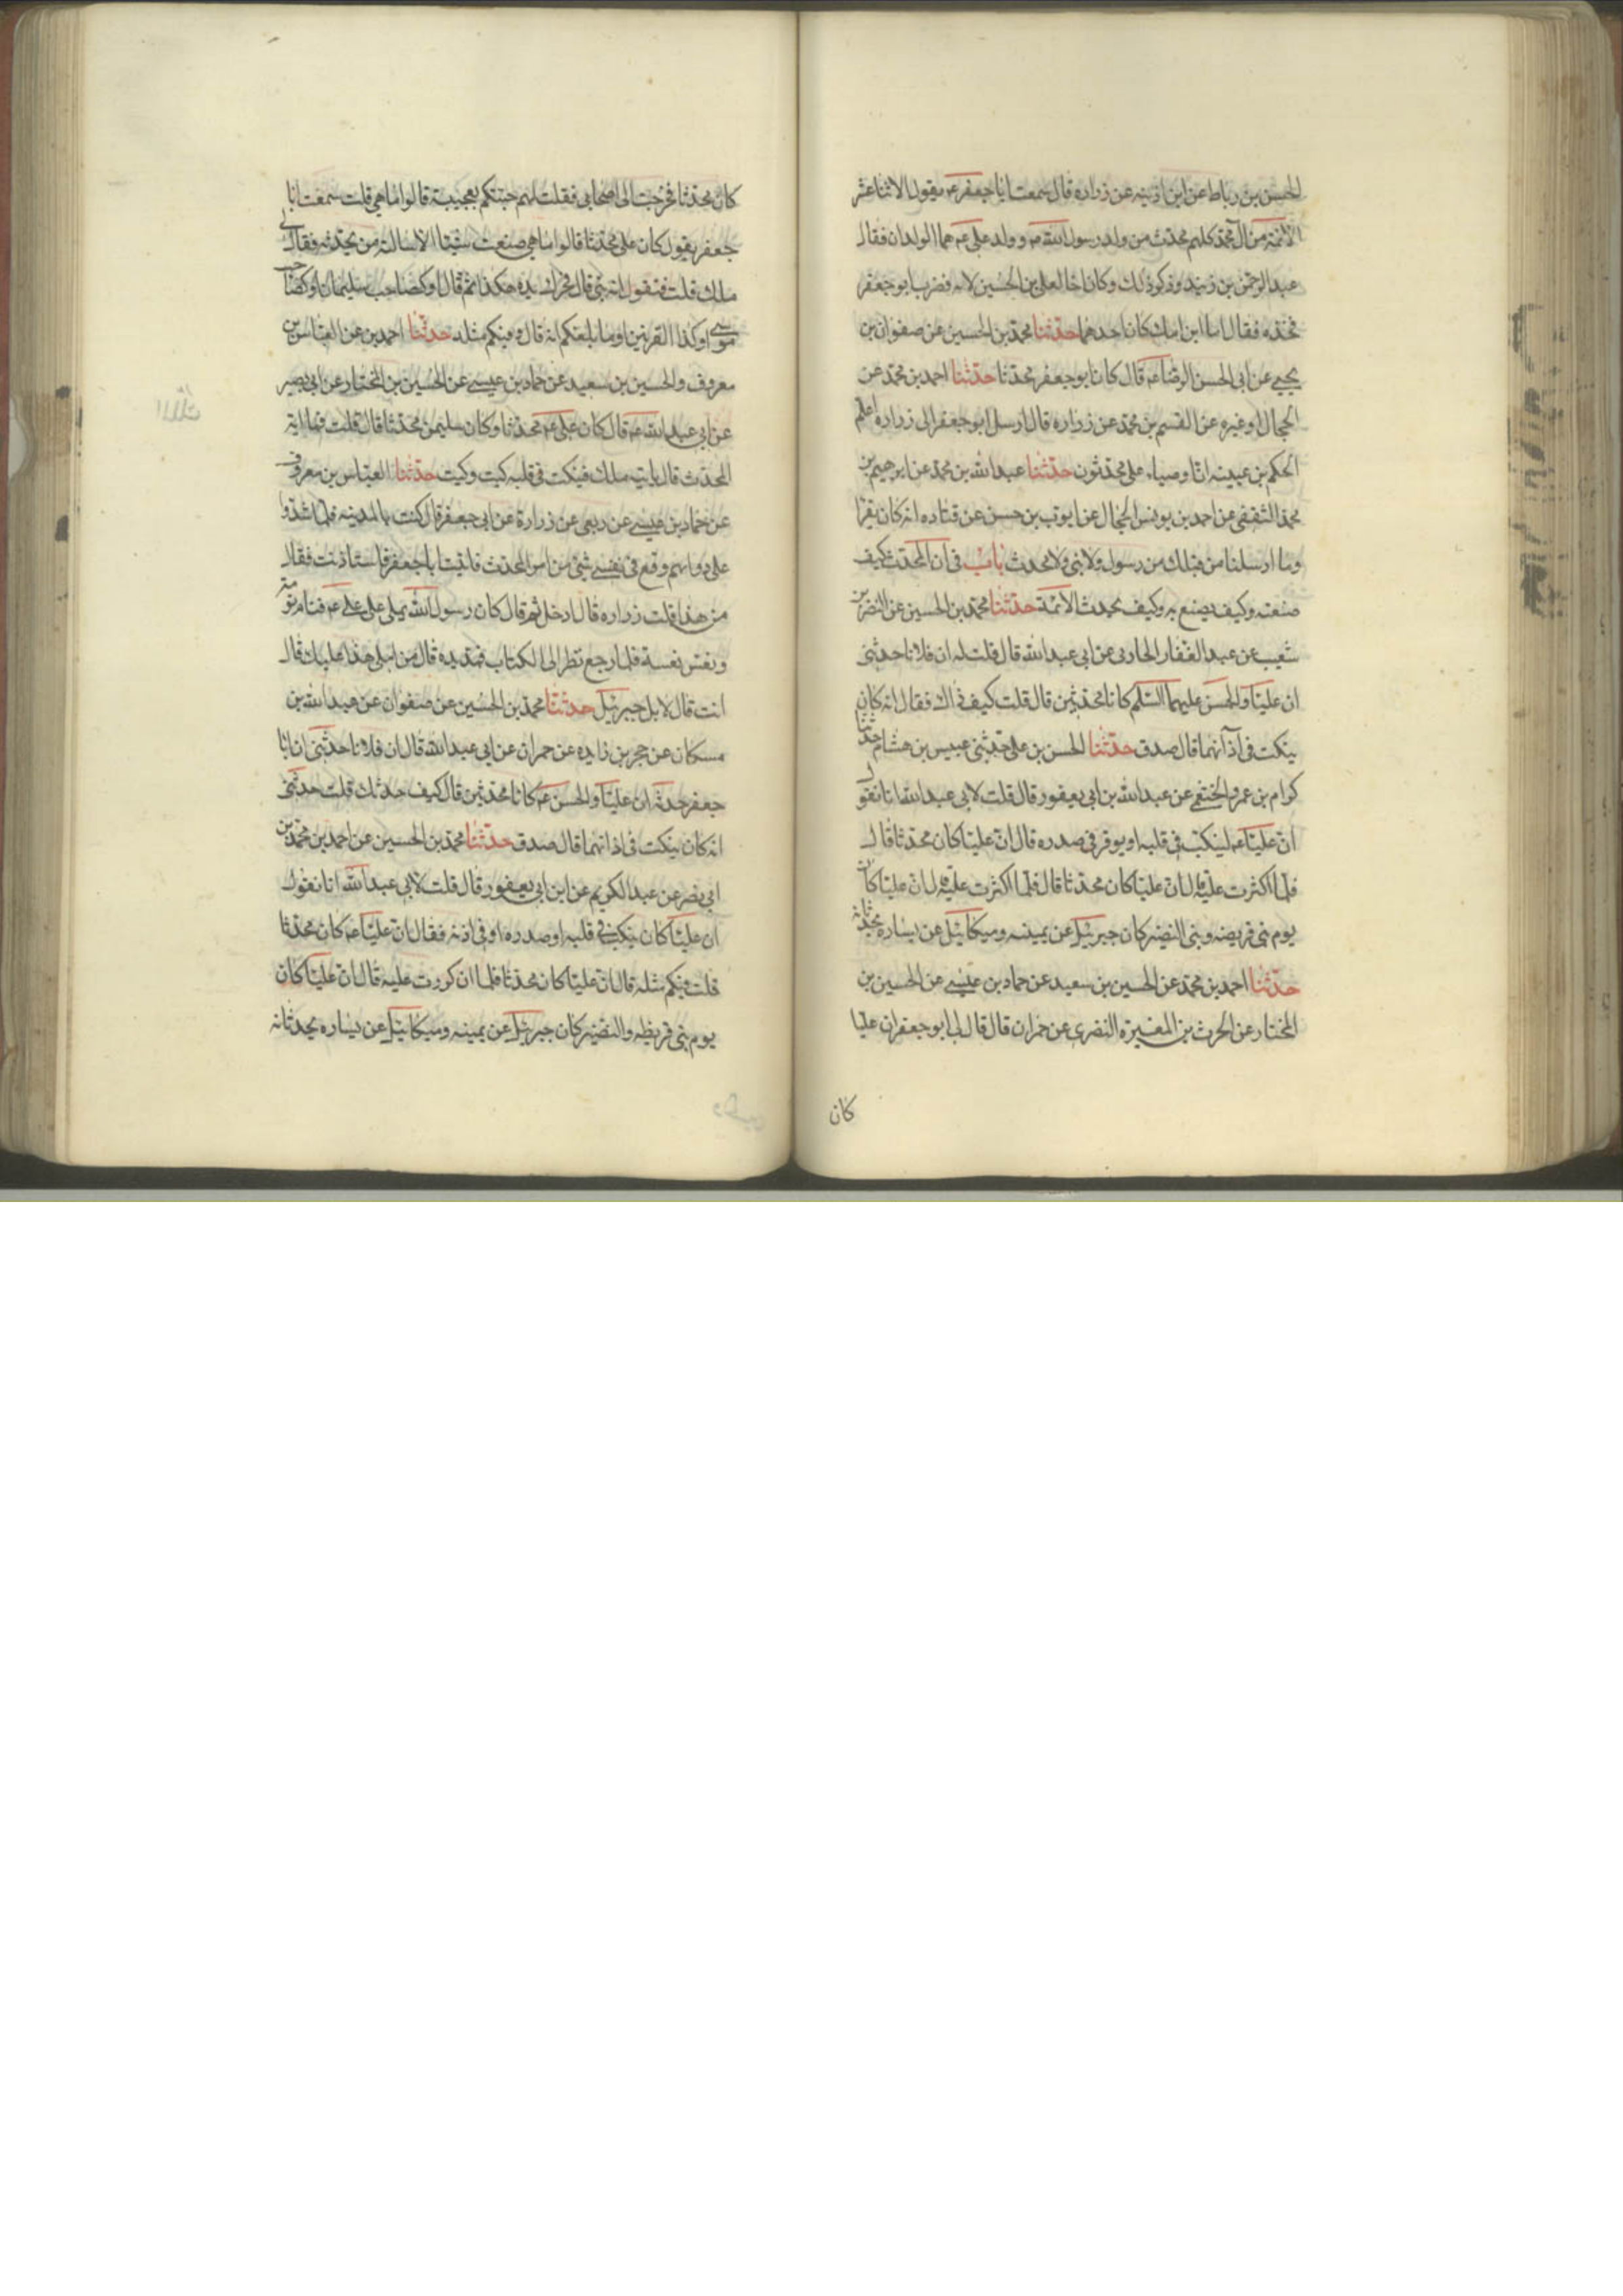 الحسن بن رباط عن ابن اذينه عن زراره قال سمعت ابا جعفر ع يقول الاثنا عشر
الائمة من آل محمد كلهم محدث من ولد رسول الله ص وولد على ع هما الوالدان فقال
عبد الرحمن بن زيد وذكر ذلك وكان اخا لعلى بن الحسين لامه فضرب ابو جعفر
فخذه فقال اما ابن امك كان احدهما حدثنا محمد بن الحسين عن صفوان بن
يحيى عن ابى الحسن الرضا ع قال كان ابو جعفر محدثا حدثنا احمد بن محمد عن
الحجال او غيره عن القسم بن محمد عن زراره قال ارسل ابو جعفر الى زراره اعلم
الحكم بن عيينه ان اوصياء على محدثون حدثنا عبد الله بن محمد عن ابرهيم بن
محمد الثقفى عن احمد بن يونس الحجال عن ايوب بن حسن عن قتاده انه كان يقرا
وما ارسلنا من قبلك من رسول ولا نبى ولا محدث باب فى ان المحدث كيف
صنعته وكيف يصنع به وكيف يحدث الائمة حدثنا محمد بن الحسين عن النضر بن
شعيب عن عبد الغفار الجازى عن ابى عبد الله قال قلت له ان فلانا حدثنى
ان عليا والحسن عليهما السلم كانا محدثين قال قلت كيف ذاك فقال انه كان
ينكت فى آذانهما قال صدق حدثنا الحسن بن على حدثنى عبيس بن هشام حدثنا
كرام بن عمرو الخثعمى عن عبد الله بن ابى يعفور قال قلت لابى عبد الله انا نقول
ان عليا ع لينكت فى قلبه او يوقر فى صدره قال ان عليا كان محدثا قال
فلما اكثرت عليه قال ان عليا كان محدثا قال فلما اكثرت عليه قال ان عليا كان
يوم بنى قريضه وبنى النضير كان جبرئيل عن يمينه وميكائيل عن يساره يحدثانه
حدثنا احمد بن محمد عن الحسين بن سعيد عن حماد بن عيسى عن الحسين بن
المختار عن الحرث بن المغيرة النضرى عن حمران قال قال لى ابو جعفر ان عليا
كان
كان محدثا فخرجت الى اصحابى فقلت لهم جئتكم بعجيبة قالوا ما هى قلت سمعت ابا
جعفر يقول كان على محدثا قالوا ما هى صنعت شيئا الا سالته من يحدثه فقال لى
ملك قلت فنقول انه نبى قال فحرك يده هكذا ثم قال او كصاحب سليمان او كصاحب
موسى او كذا القرنين او ما بلغكم انه قال وفيكم مثله حدثنا احمد بن عن العباس بن
معروف والحسين بن سعيد عن حماد بن عيسى عن الحسين بن المختار عن ابى بصير
عن ابى عبد الله ع قال كان على ع محدثا وكان سليمن محدثا قال قلت فما اية
المحدث قال ياتيه ملك فينكت فى قلبه كيت وكيت حدثنا العباس بن معروف
عن حماد بن عيسى عن ربعى عن زرارة عن ابى جعفر قال كنت بالمدينه فلما شدوا
على دوابهم وقع فى نفسى شئ من امر المحدث فاتيت ابا جعفر فاستاذنت فقال
من هذا قلت زراره قال ادخل ثم قال كان رسول الله يملى على على ع فنام نومة
ونعس نعسة فلما رجع نظر الى الكتاب فمد يده قال من املى هذا عليك قال
انت قال لا بل جبرئيل حدثنا محمد بن الحسين عن صفوان عن عبد الله بن
مسكان عن حجر بن زايده عن حمران عن ابى عبد الله قال ان فلانا حدثنى ان ابا
جعفر حدثه ان عليا والحسن ع كانا محدثين قال كيف حدثك قلت حدثنى
انه كان ينكت فى اذانهما قال صدق حدثنا محمد بن الحسين عن احمد بن محمد بن
ابى نصر عن عبد الكريم عن ابن ابى يعفور قال قلت لابى عبد الله انا نقول
ان عليا كان ينكت فى قلبه او صدره او فى اذنه فقال ان عليا ع كان محدثا
قلت فيكم مثله قال ان عليا كان محدثا فلما ان كررت عليه قال ان عليا كان
يوم بنى قريظه والنضير كان جبرئيل عن يمينه وميكائيل عن يساره يحدثانه